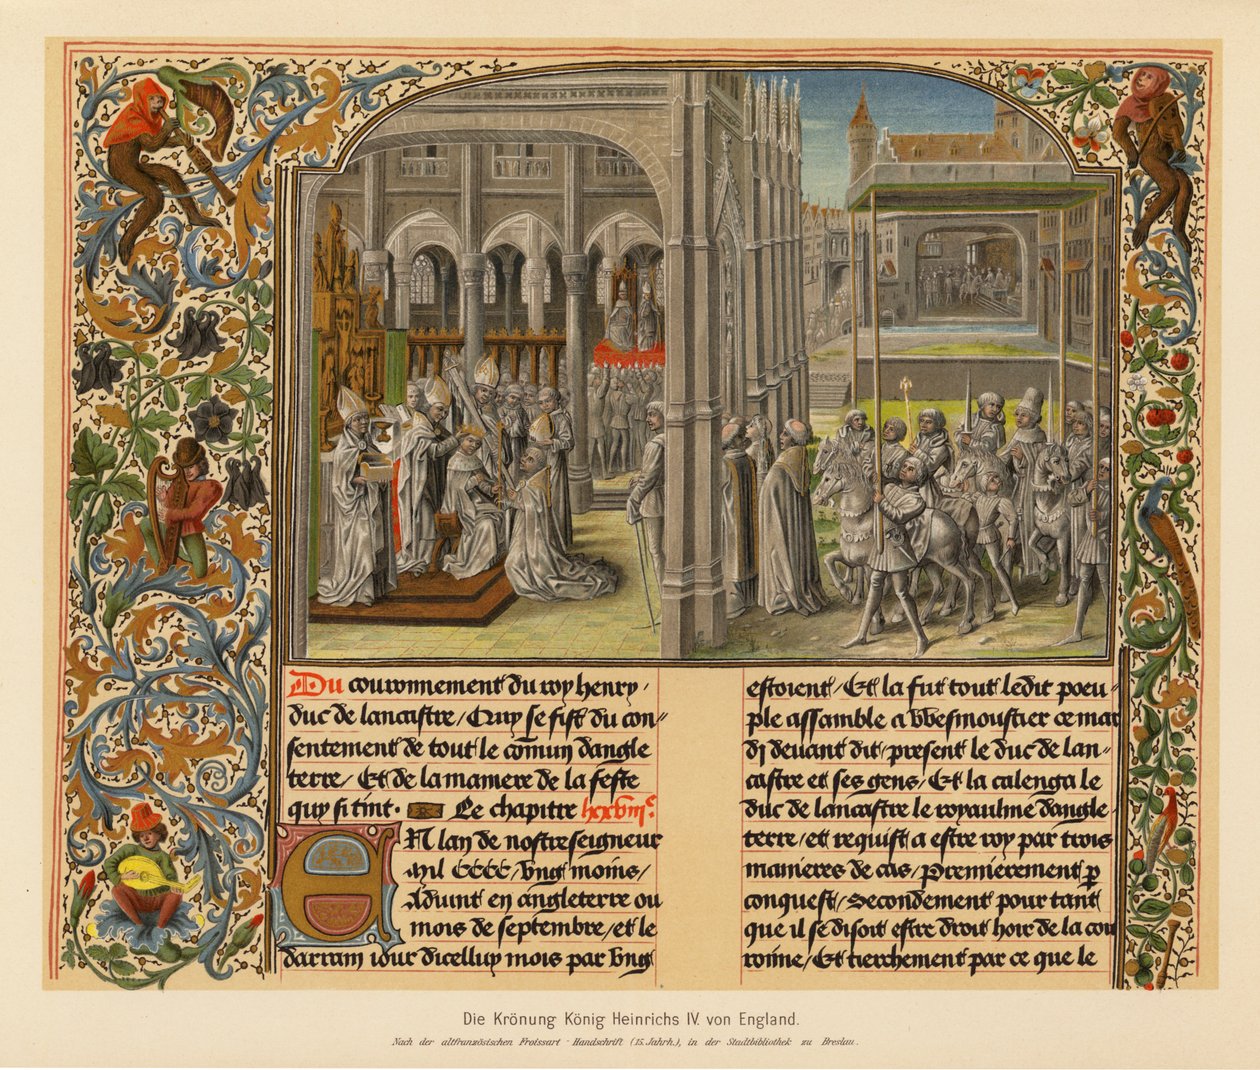 Du couronnement du roy henry
duc de lancastre / Quy se fist du con-
sentement de tout le comun dangle
terre / Et de la maniere de la feste
quy si tint. Le chapitre lxxviiie.
EN lan de nostre seigneur
mil CCCC / vng moins /
Aduint en angleterre ou
mois de septembre / et le
darrain iour dicelluy mois par vng
estoient / Et la fut tout ledit poeu-
ple assamble a wesmoustier ce mar
di deuant dit / present le duc de lan-
castre et ses gens / Et la calenga le
duc de lancastre le royaulme dangle
terre / et requist a estre roy par trois
manieres de cas / Premierement p
conquest / Secondement pour tant
que il se disoit estre droit hoir de la cou
ronne / Et tierchement par ce que le
Die Krönung König Heinrichs IV. von England.
Nach der altfranzösischen Froissart-Handschrift (15. Jahrh.), in der Stadtbibliothek zu Breslau.